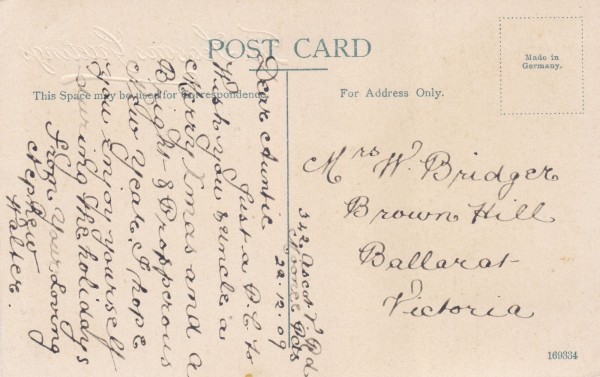 POST CARD
Made in
Germany.
This Space may be used for Correspondence.
For Address Only.
342 Ascot V. Rd
Moonee Pds
22.12.09
Dear Auntie
Just a P.C. to
Wish you & Uncle a
Merry Xmas and a
Bright & Prosperous
New Year. I hope
you enjoy yourself
during the holidays
From Your Loving
Nephew
Walter.
Mrs W. Bridger
Brown Hill
Ballarat
Victoria
169334